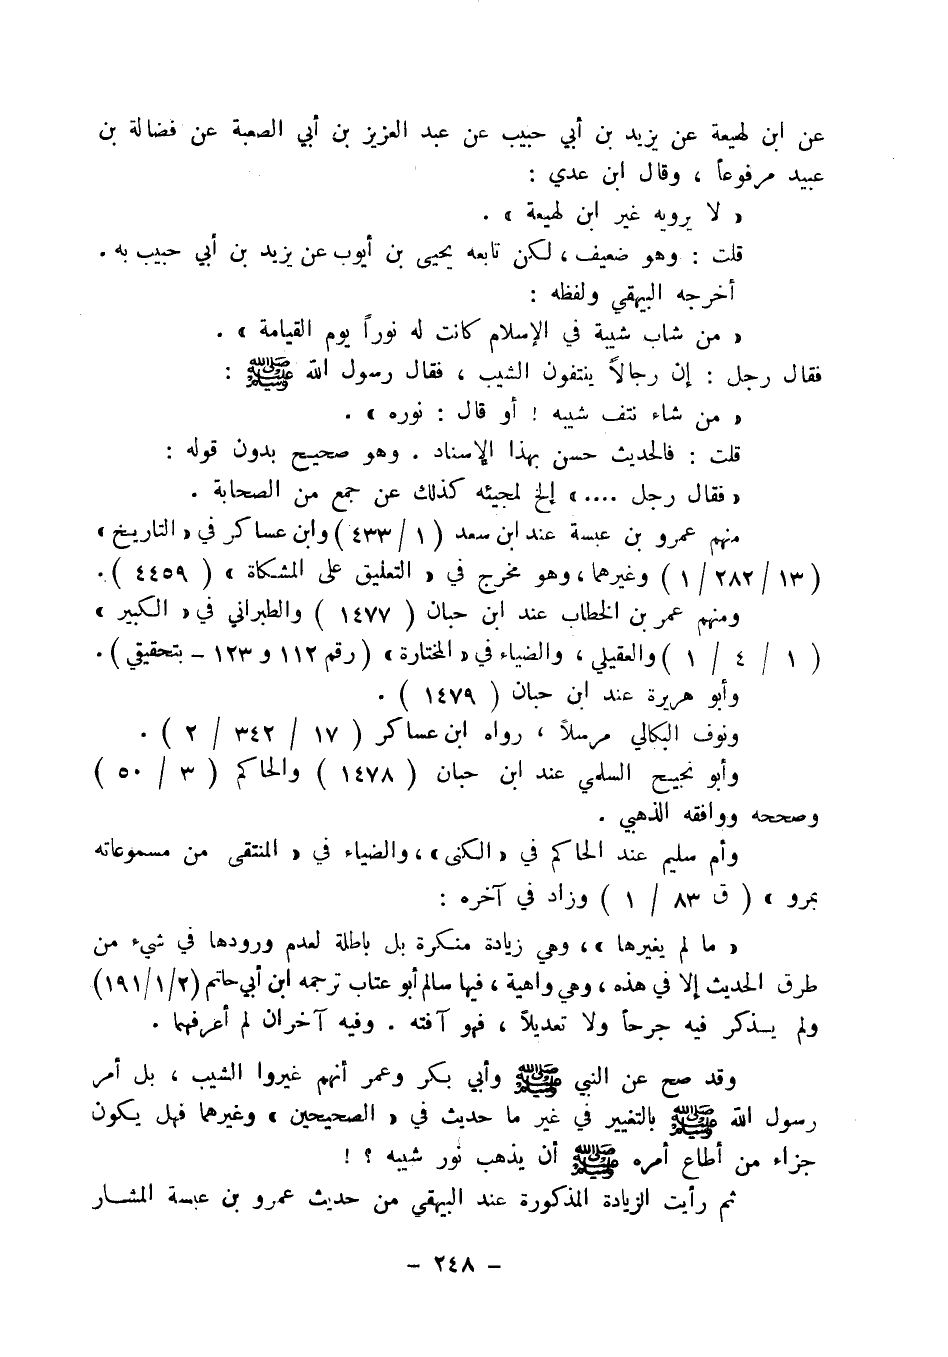 عن ابن لهيعة عن يزيد بن أبي حبيب عن عبد العزيز بن أبي الصعبة عن فضالة بن
عبيد مرفوعاً ، وقال ابن عدي :
« لا يرويه غير ابن لهيعة » .
قلت : وهو ضعيف ، لكن تابعه يحيى بن أيوب عن يزيد بن أبي حبيب به .
أخرجه البيهقي ولفظه :
« من شاب شيبة في الإسلام كانت له نوراً يوم القيامة » .
فقال رجل : إن رجالاً ينتفون الشيب ، فقال رسول الله ﷺ :
« من شاء نتف شيبه ! أو قال : نوره » .
قلت : فالحديث حسن بهذا الإسناد . وهو صحيح بدون قوله :
« فقال رجل .... » إلخ لمجيئه كذلك عن جمع من الصحابة .
منهم عمرو بن عبسة عند ابن سعد ( ١ / ٤٣٣ ) وابن عساكر في « التاريخ »
( ١٣ / ٢٨٢ / ١ ) وغيرهما ، وهو مخرج في « التعليق على المشكاة » ( ٤٤٥٩ ) .
ومنهم عمر بن الخطاب عند ابن حبان ( ١٤٧٧ ) والطبراني في « الكبير »
( ١ / ٤ / ١ ) والعقيلي ، والضياء في « المختارة » ( رقم ١١٢ و ١٢٣ – بتحقيقي ) .
وأبو هريرة عند ابن حبان ( ١٤٧٩ ) .
ونوف البكالي مرسلاً ، رواه ابن عساكر ( ١٧ / ٣٤٢ / ٢ ) .
وأبو نجيح السلمي عند ابن حبان ( ١٤٧٨ ) والحاكم ( ٣ / ٥٠ )
وصححه ووافقه الذهبي .
وأم سليم عند الحاكم في « الكنى » ، والضياء في « المنتقى من مسموعاته
بمرو » ( ق ٨٣ / ١ ) وزاد في آخره :
« ما لم يغيرها » ، وهي زيادة منكرة بل باطلة لعدم ورودها في شيء من
طرق الحديث إلا في هذه ، وهي واهية ، فيها سالم أبو عتاب ترجمه ابن أبي حاتم (٢/١/١٩١)
ولم يذكر فيه جرحاً ولا تعديلاً ، فهو آفته . وفيه آخران لم أعرفهما .
وقد صح عن النبي ﷺ وأبي بكر وعمر أنهم غيروا الشيب ، بل أمر
رسول الله ﷺ بالتغيير في غير ما حديث في « الصحيحين » وغيرهما فهل يكون
جزاء من أطاع أمره ﷺ أن يذهب نور شيبه ؟ !
ثم رأيت الزيادة المذكورة عند البيهقي من حديث عمرو بن عبسة المشار
– ٢٤٨ –